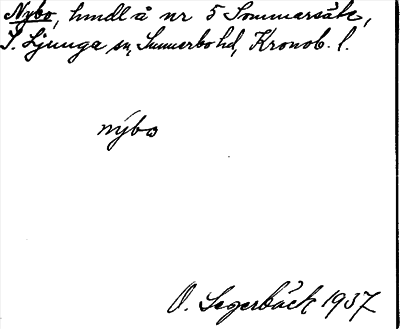 Nybo, hmdl å nr 5 Sommarsäte,
S. Ljunga sn, Sunnerbo hd, Kronob. l.
nýbo
O. Segerbäck 1937